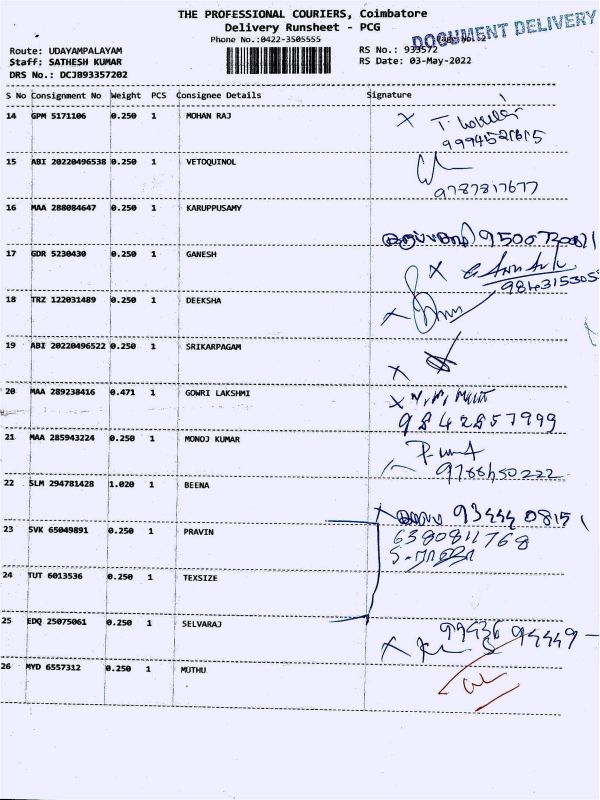 THE PROFESSIONAL COURIERS, Coimbatore
Delivery Runsheet - PCG
Phone No.:0422-3505555
DOCUMENT DELIVERY
Route: UDAYAMPALAYAM
RS No.: 933572
Staff: SATHESH KUMAR
RS Date: 03-May-2022
DRS No.: DCJB93357202
S No Consignment No Weight PCS Consignee Details Signature
14 GPM 5171106 0.250 1 MOHAN RAJ
15 ABI 20220496538 0.250 1 VETOQUINOL
9787817677
16 MAA 288084647 0.250 1 KARUPPUSAMY
17 GDR 5230430 0.250 1 GANESH
18 TRZ 122031489 0.250 1 DEEKSHA
19 ABI 20220496522 0.250 1 SRIKARPAGAM
20 MAA 289238416 0.471 1 GOWRI LAKSHMI
9842857999
21 MAA 285943224 0.250 1 MONOJ KUMAR
22 SLM 294781428 1.020 1 BEENA
23 SVK 65049891 0.250 1 PRAVIN
6380811768
24 TUT 6013536 0.250 1 TEXSIZE
25 EDQ 25075061 0.250 1 SELVARAJ
99436 94449
26 MYD 6557312 0.250 1 MUTHU